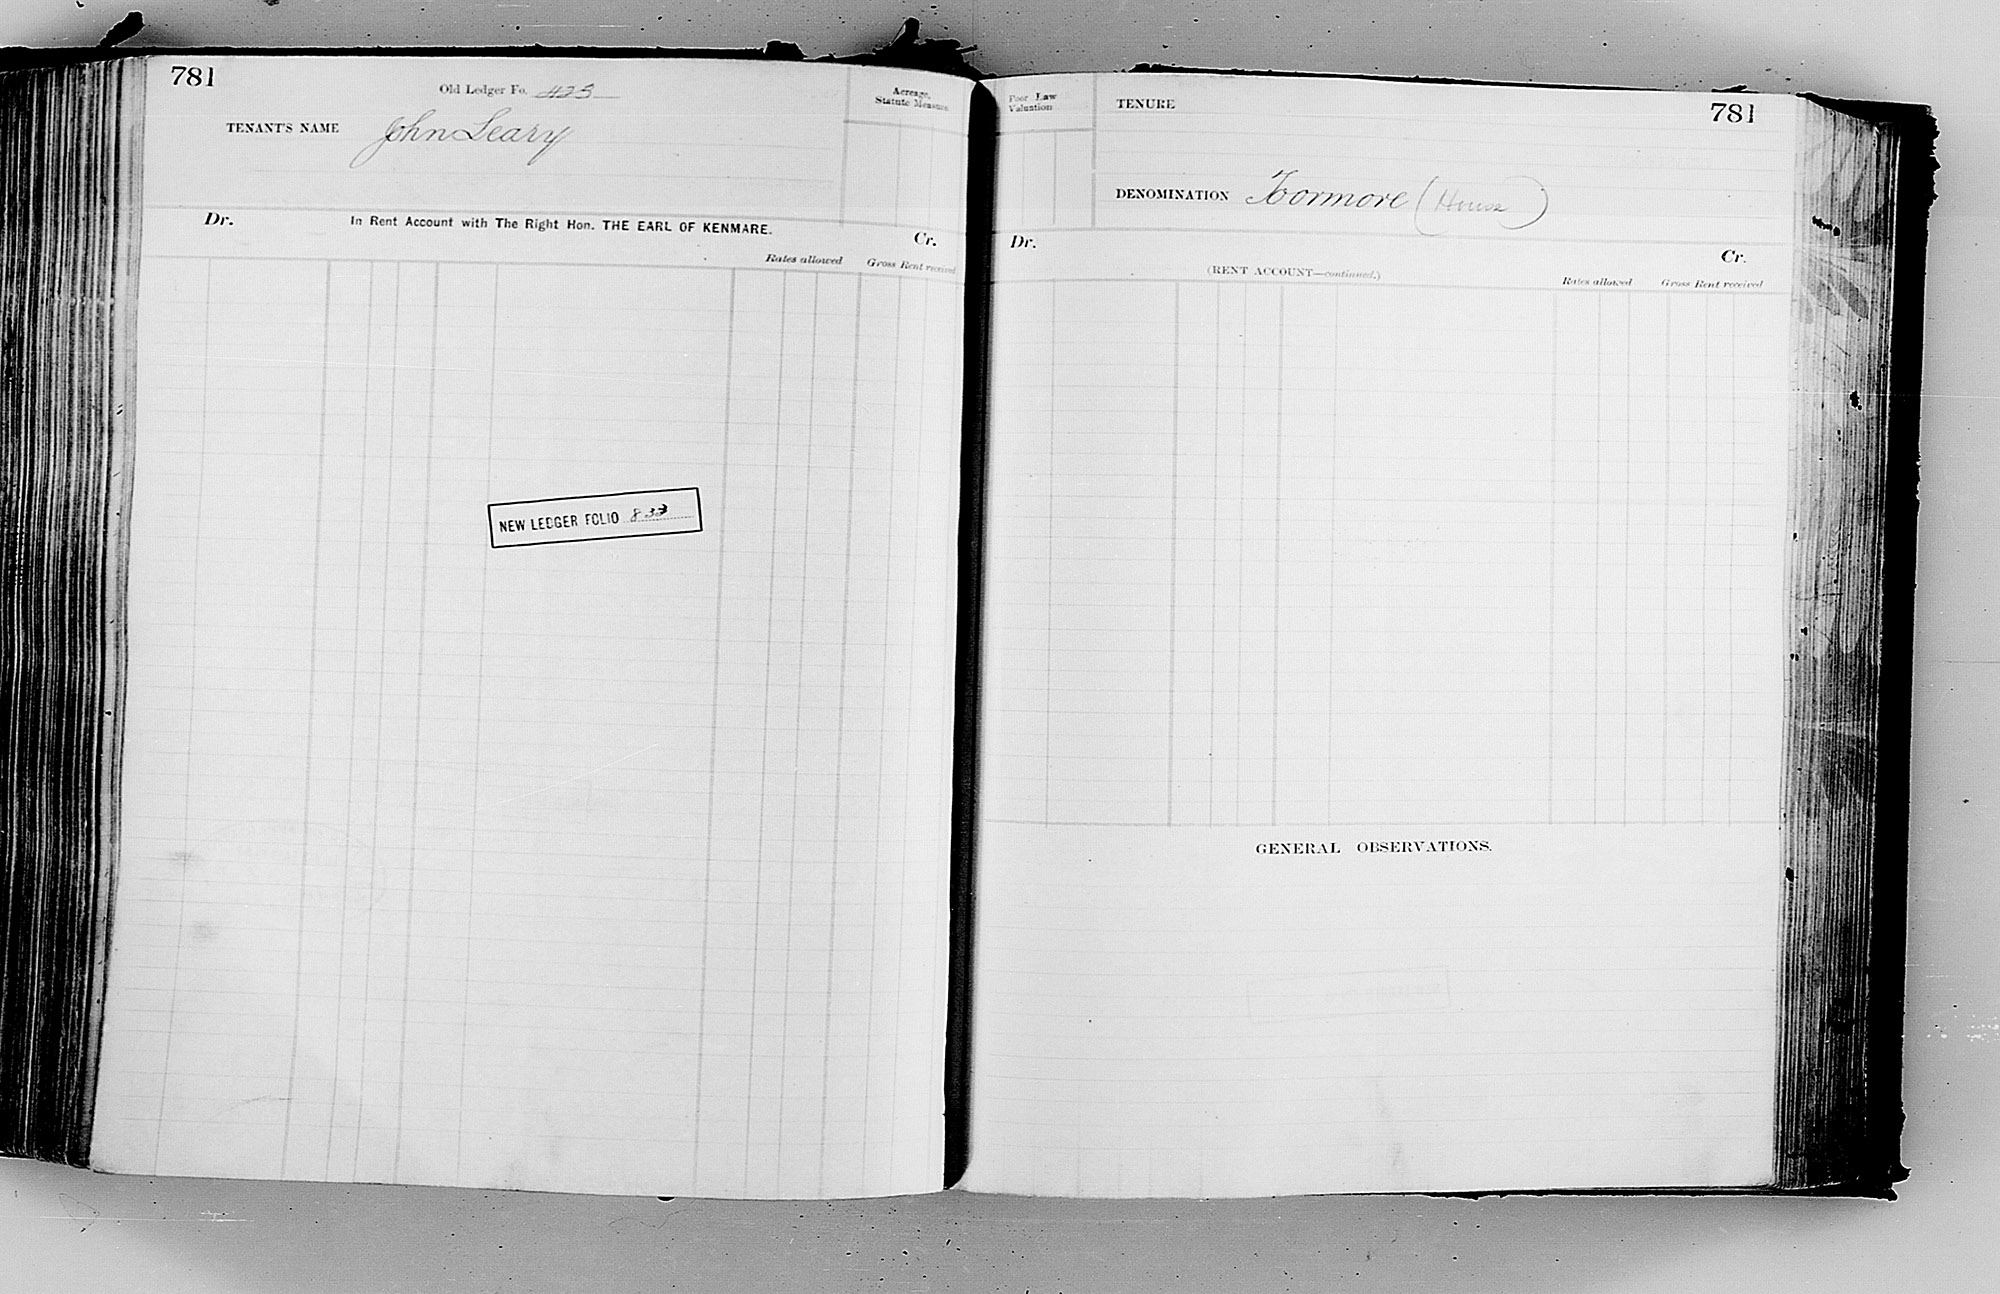 781
Old Ledger Fo. 423
TENANT'S NAME John Leary
Acreage, Statute Measure
Dr. In Rent Account with The Right Hon. THE EARL OF KENMARE. Cr.
Rates allowed Gross Rent received
NEW LEDGER FOLIO 833
Poor Law Valuation
TENURE
781
DENOMINATION Tormore (House)
Dr. Cr.
(RENT ACCOUNT—continued.)
Rates allowed Gross Rent received
GENERAL OBSERVATIONS.